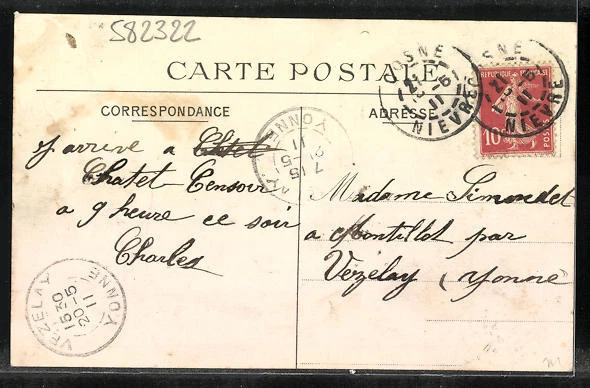 582322
CARTE POSTALE
CORRESPONDANCE
ADRESSE
J'arrive a
Chatel Censoir
a 9 heure ce soir
Charles
Madame Simondet
a Montillot par
Vézelay (Yonne)
OSNE
NIEVRE
OSNE
NIEVRE
REPUBLIQUE FRANÇAISE
10
POSTES
YONNE
7 15
21-5
11
VEZELAY
YONNE
15 30
20-5
11